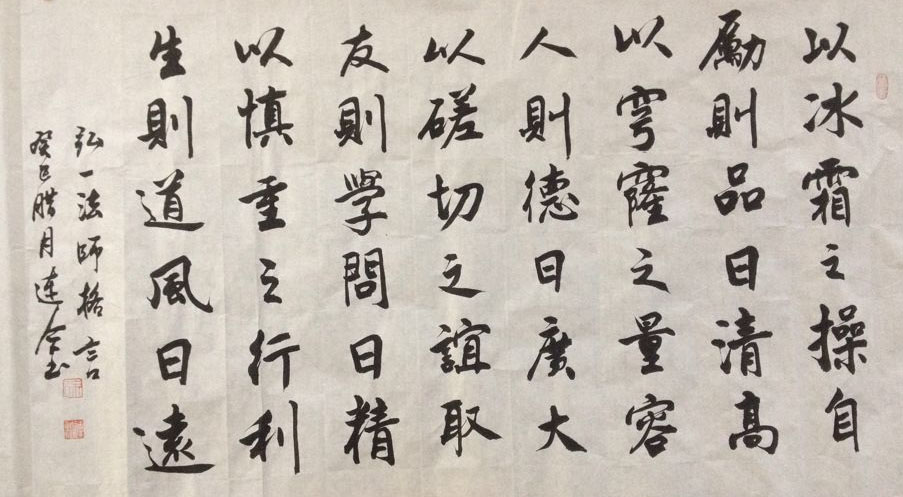 以冰霜之操自
勵則品日清高
以穹窿之量容
人則德日廣大
以磋切之誼取
友則學問日精
以慎重之行利
生則道風日遠
弘一法師格言
癸巳腊月連合书